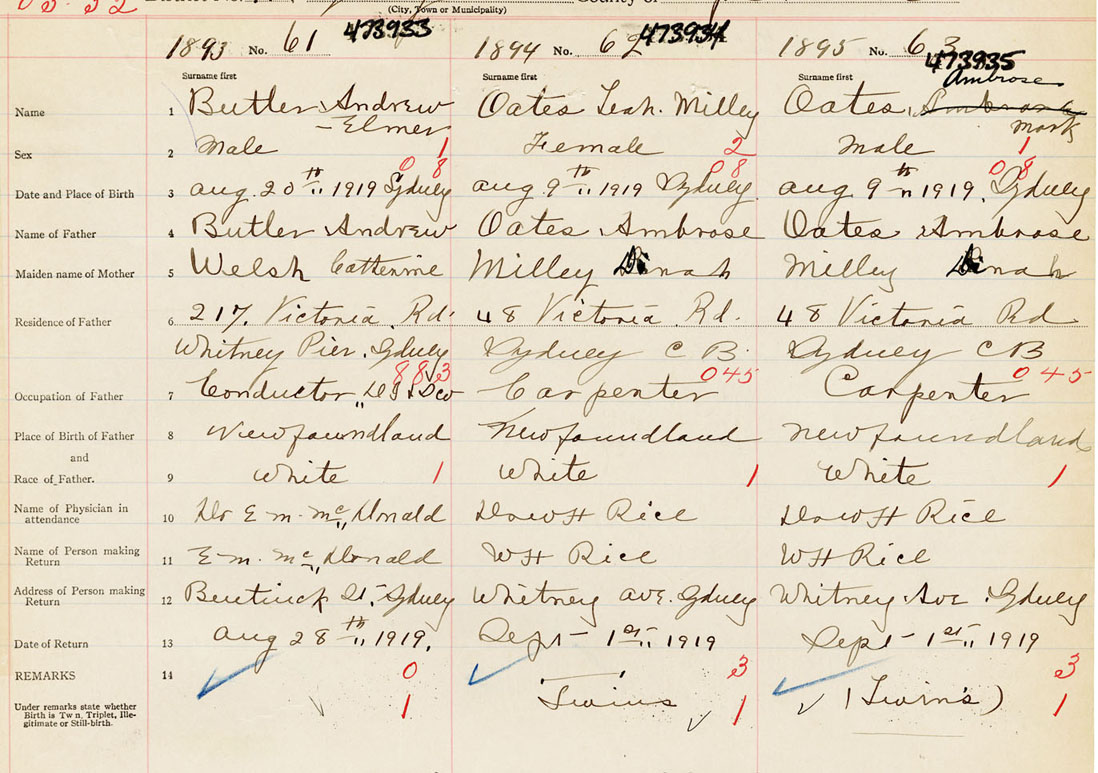 (City, Town or Municipality)
1893 No. 61 473933 1894 No. 62 473934 1895 No. 63 473935
Surname first Surname first Surname first Ambrose
Name 1 Butler Andrew Oates Leah Milley Oates,
Elmer Mark
Sex 2 Male 1 Female 2 Male 1
08 08 08
Date and Place of Birth 3 Aug. 20th 1919 Sydney Aug 9th 1919 Sydney Aug 9th 1919. Sydney
Name of Father 4 Butler Andrew Oates Ambrose Oates Ambrose
Maiden name of Mother 5 Welsh Catherine Milley Dinah Milley Dinah
Residence of Father 6 217. Victoria Rd. 48 Victoria Rd. 48 Victoria Rd
Whitney Pier. Sydney Sydney C B. Sydney CB
883 045 045
Occupation of Father 7 Conductor Carpenter Carpenter
Place of Birth of Father 8 Newfoundland Newfoundland Newfoundland
and
Race of Father. 9 White 1 White 1 White 1
Name of Physician in
attendance 10 Dr E. M. Mc Donald Dr W H Rice Dr W H Rice
Name of Person making
Return 11 E. M. Mc Donald W H Rice W H Rice
Address of Person making
Return 12 Bentinck St. Sydney Whitney Ave. Sydney Whitney Ave. Sydney
Date of Return 13 Aug 28th 1919. Sept 1st 1919 Sept 1st 1919
REMARKS 14 0 3 3
Under remarks state whether
Birth is Twin, Triplet, Ille-
gitimate or Still-birth. 1 Twins 1 (Twin's) 1